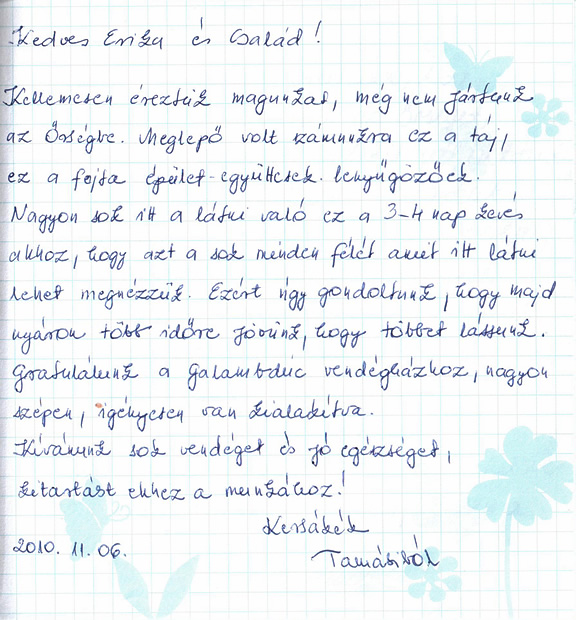 Kedves Erika és Család!
Kellemesen éreztük magunkat, még nem jártunk
az Őrségbe. Meglepő volt számunkra ez a táj,
ez a fajta épület-együttesek. lenyűgözőek.
Nagyon sok itt a látni való ez a 3-4 nap kevés
ahhoz, hogy azt a sok minden félét amit itt látni
lehet megnézzük. Ezért úgy gondoltunk, hogy majd
nyáron több időre jövünk, hogy többet lássunk.
Gratulálunk a Galambdúc vendégházhoz, nagyon
szépen, igényesen van kialakítva.
Kívánunk sok vendéget és jó egészséget,
kitartást ehhez a munkához!
2010. 11. 06.
Tamásiból